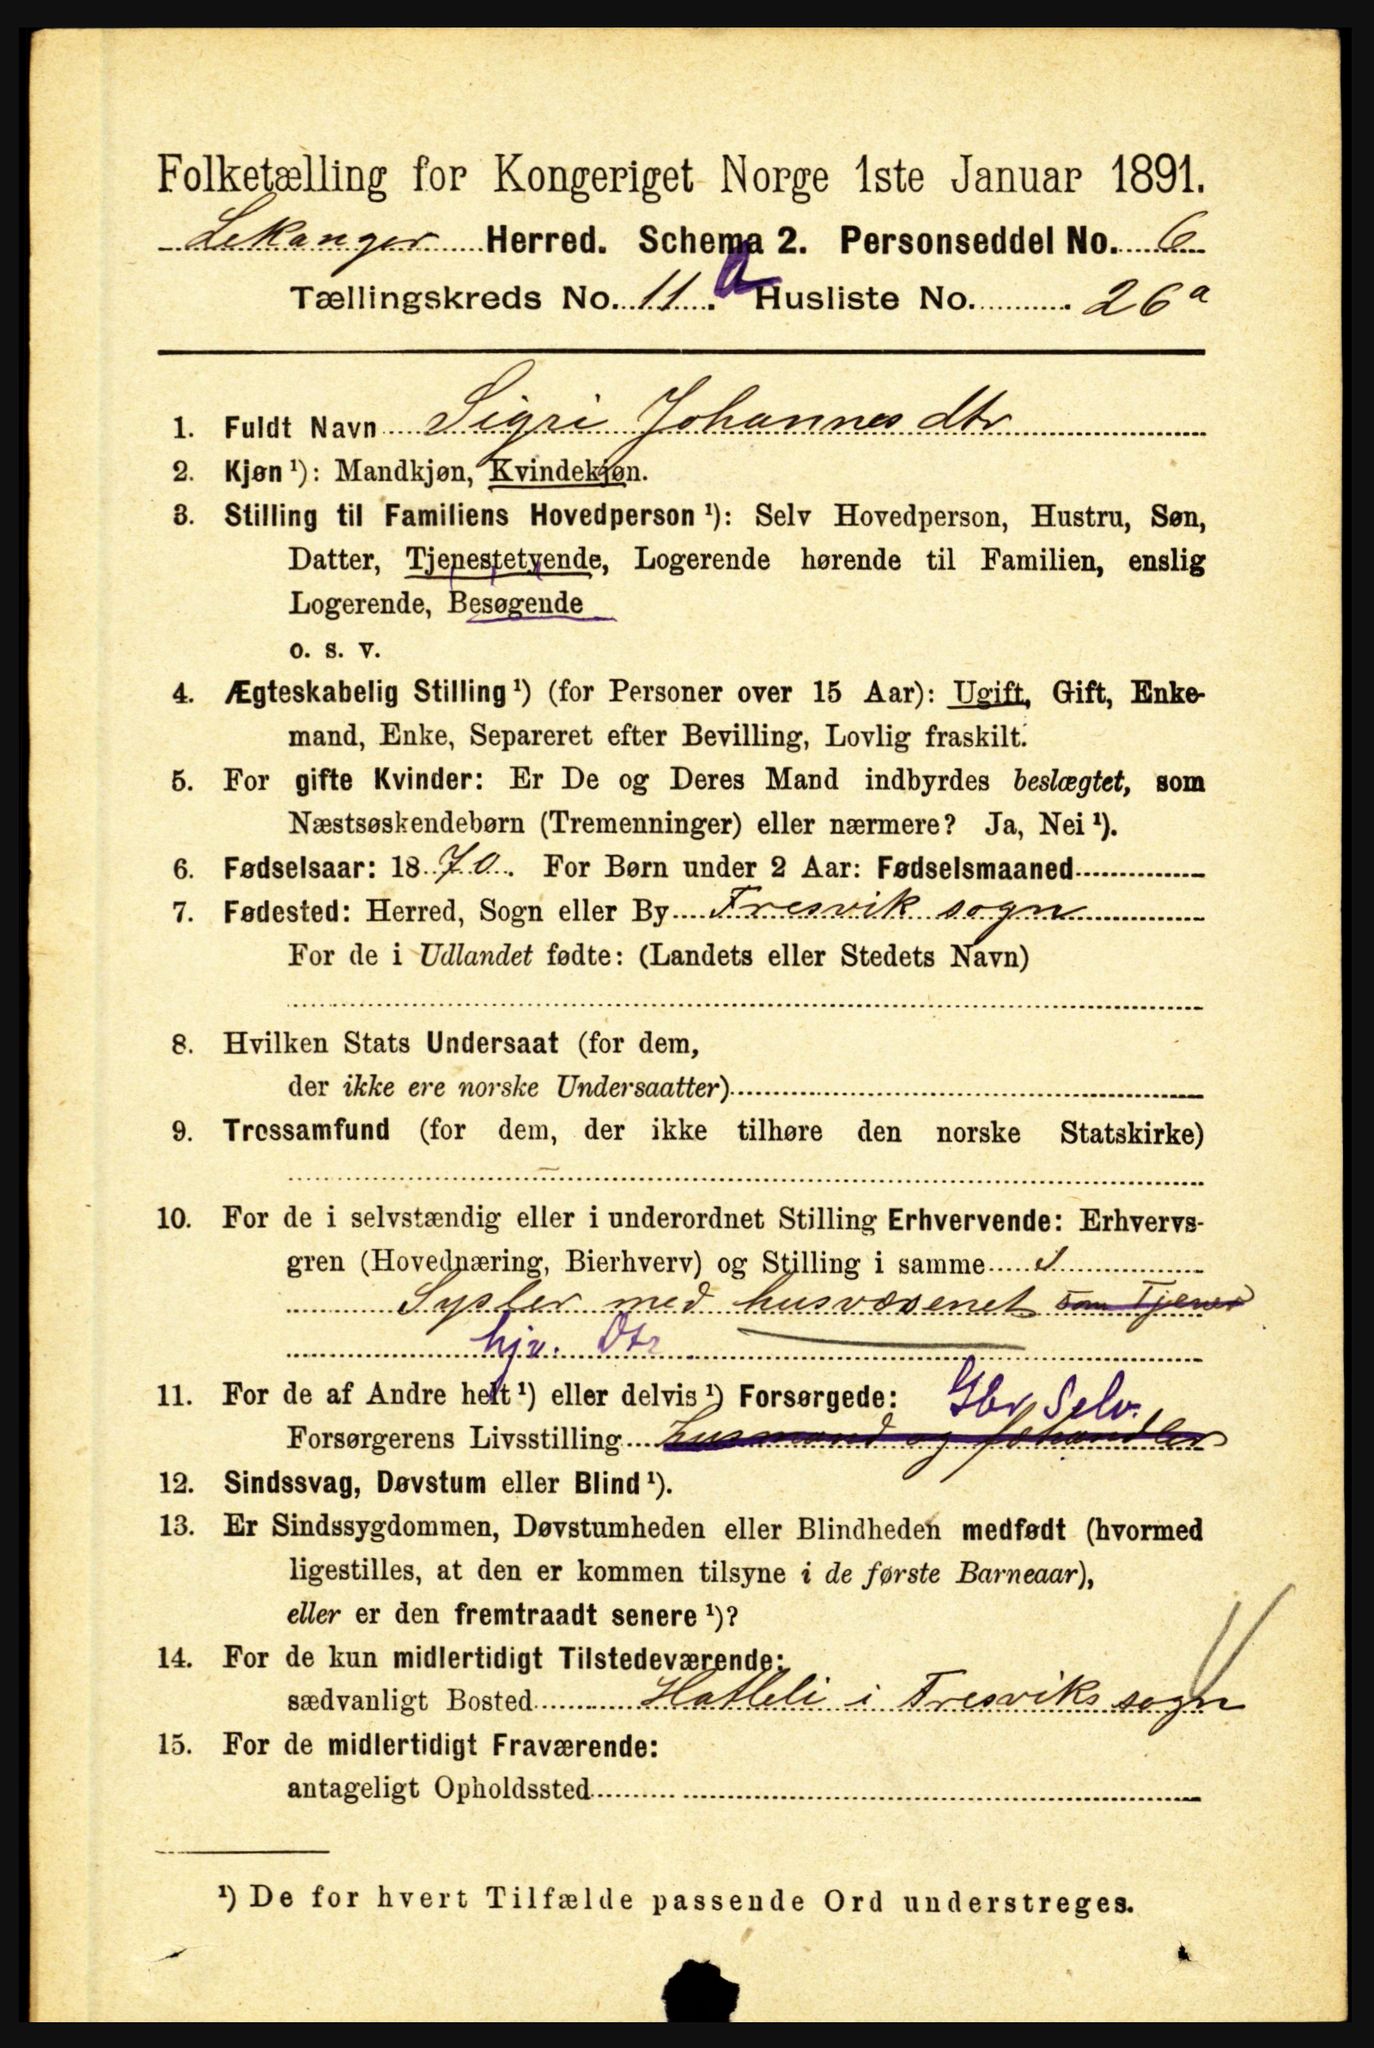 Folketælling for Kongeriget Norge 1ste Januar 1891.
Lekanger Herred. Schema 2. Personseddel No. 6
Tællingskreds No. 11. a Husliste No. 26 a
1. Fuldt Navn Sigri Johannesdtr
2. Kjøn ¹): Mandkjøn, Kvindekjøn.
3. Stilling til Familiens Hovedperson ¹): Selv Hovedperson, Hustru, Søn,
Datter, Tjenestetyende, Logerende hørende til Familien, enslig
Logerende, Besøgende
o. s. v.
4. Ægteskabelig Stilling ¹) (for Personer over 15 Aar): Ugift, Gift, Enke-
mand, Enke, Separeret efter Bevilling, Lovlig fraskilt.
5. For gifte Kvinder: Er De og Deres Mand indbyrdes beslægtet, som
Næstsøskendebørn (Tremenninger) eller nærmere? Ja, Nei ¹).
6. Fødselsaar: 1870. For Børn under 2 Aar: Fødselsmaaned
7. Fødested: Herred, Sogn eller By Fresvik sogn
For de i Udlandet fødte: (Landets eller Stedets Navn)
8. Hvilken Stats Undersaat (for dem,
der ikke ere norske Undersaatter)
9. Trossamfund (for dem, der ikke tilhøre den norske Statskirke)
10. For de i selvstændig eller i underordnet Stilling Erhvervende: Erhvervs-
gren (Hovednæring, Bierhverv) og Stilling i samme
Sysler med husvæsenet som Tjener
hjv. Dtr
11. For de af Andre helt ¹) eller delvis ¹) Forsørgede: Gbr Selv.
Forsørgerens Livsstilling husmand og
12. Sindssvag, Døvstum eller Blind ¹).
13. Er Sindssygdommen, Døvstumheden eller Blindheden medfødt (hvormed
ligestilles, at den er kommen tilsyne i de første Barneaar),
eller er den fremtraadt senere ¹)?
14. For de kun midlertidigt Tilstedeværende:
sædvanligt Bosted Hatleli i Fresviks sogn
15. For de midlertidigt Fraværende:
antageligt Opholdssted
¹) De for hvert Tilfælde passende Ord understreges.